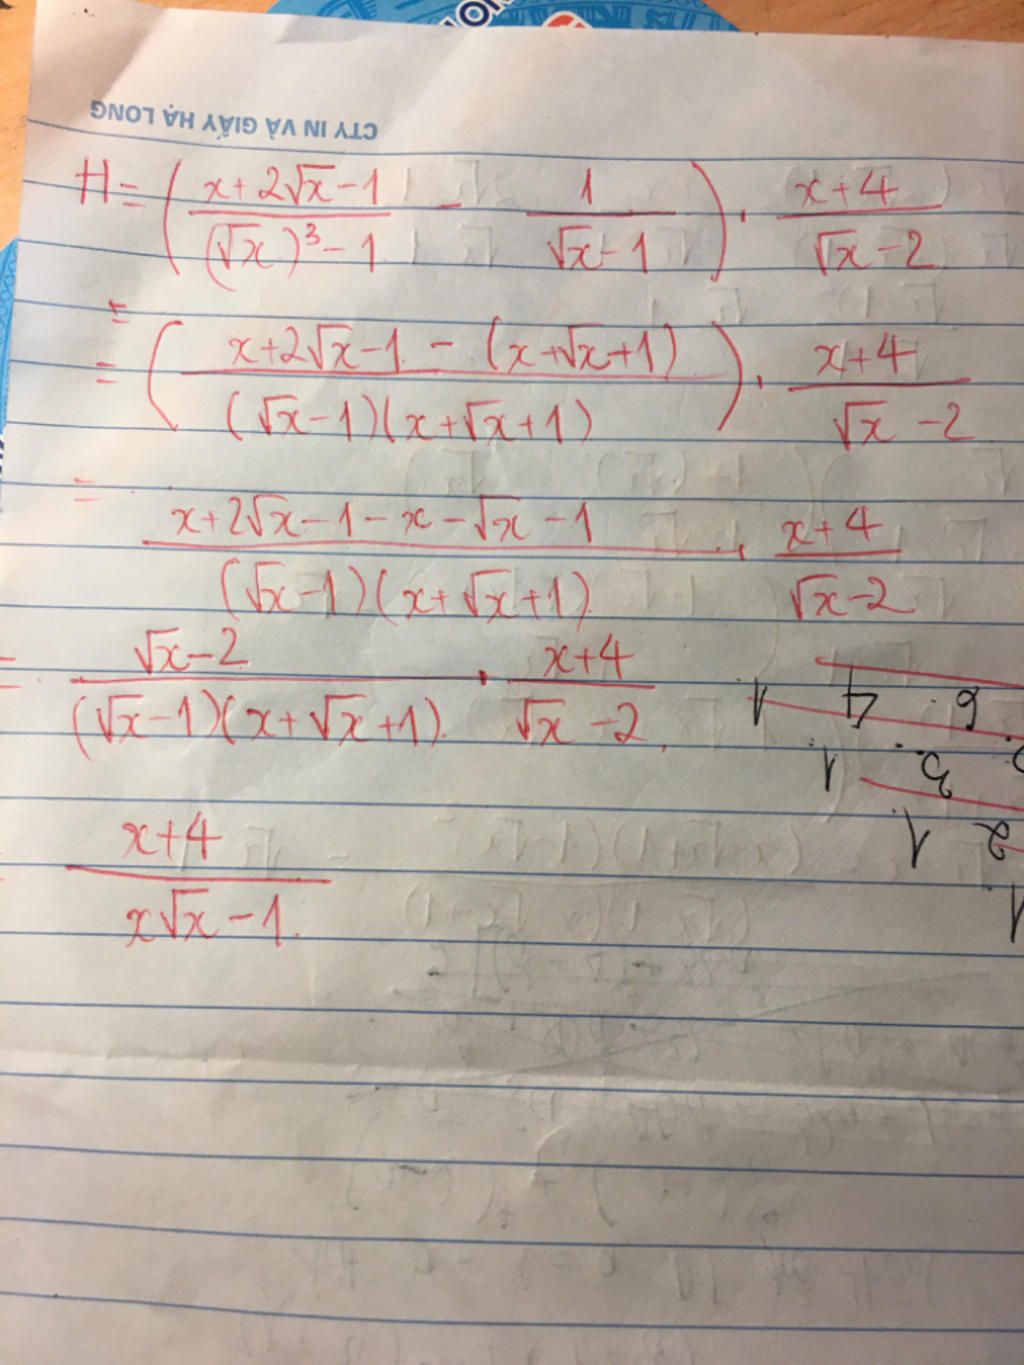 CTY IN VÀ GIẤY HẠ LONG
H = ( (x+2√x-1)/((√x)³-1) - 1/(√x-1) ) . (x+4)/(√x-2)
=
= ( (x+2√x-1 - (x+√x+1))/((√x-1)(x+√x+1)) ) . (x+4)/(√x-2)
= (x+2√x-1-x-√x-1)/((√x-1)(x+√x+1)) . (x+4)/(√x-2)
= (√x-2)/((√x-1)(x+√x+1)) . (x+4)/(√x-2)
(x+4)/(x√x-1)
1
1 2
1 3
1 4 6